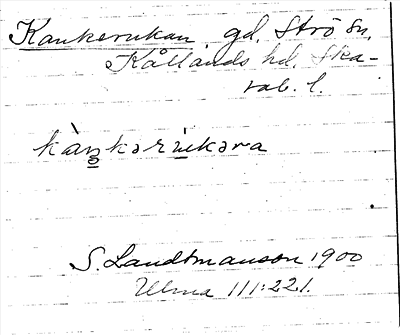 Kankerukan, gd, Strö sn,
Kållands hd, Ska-
rab. l.
kàŋkərùkəra
S. Landtmanson 1900
Ulma 111:221.